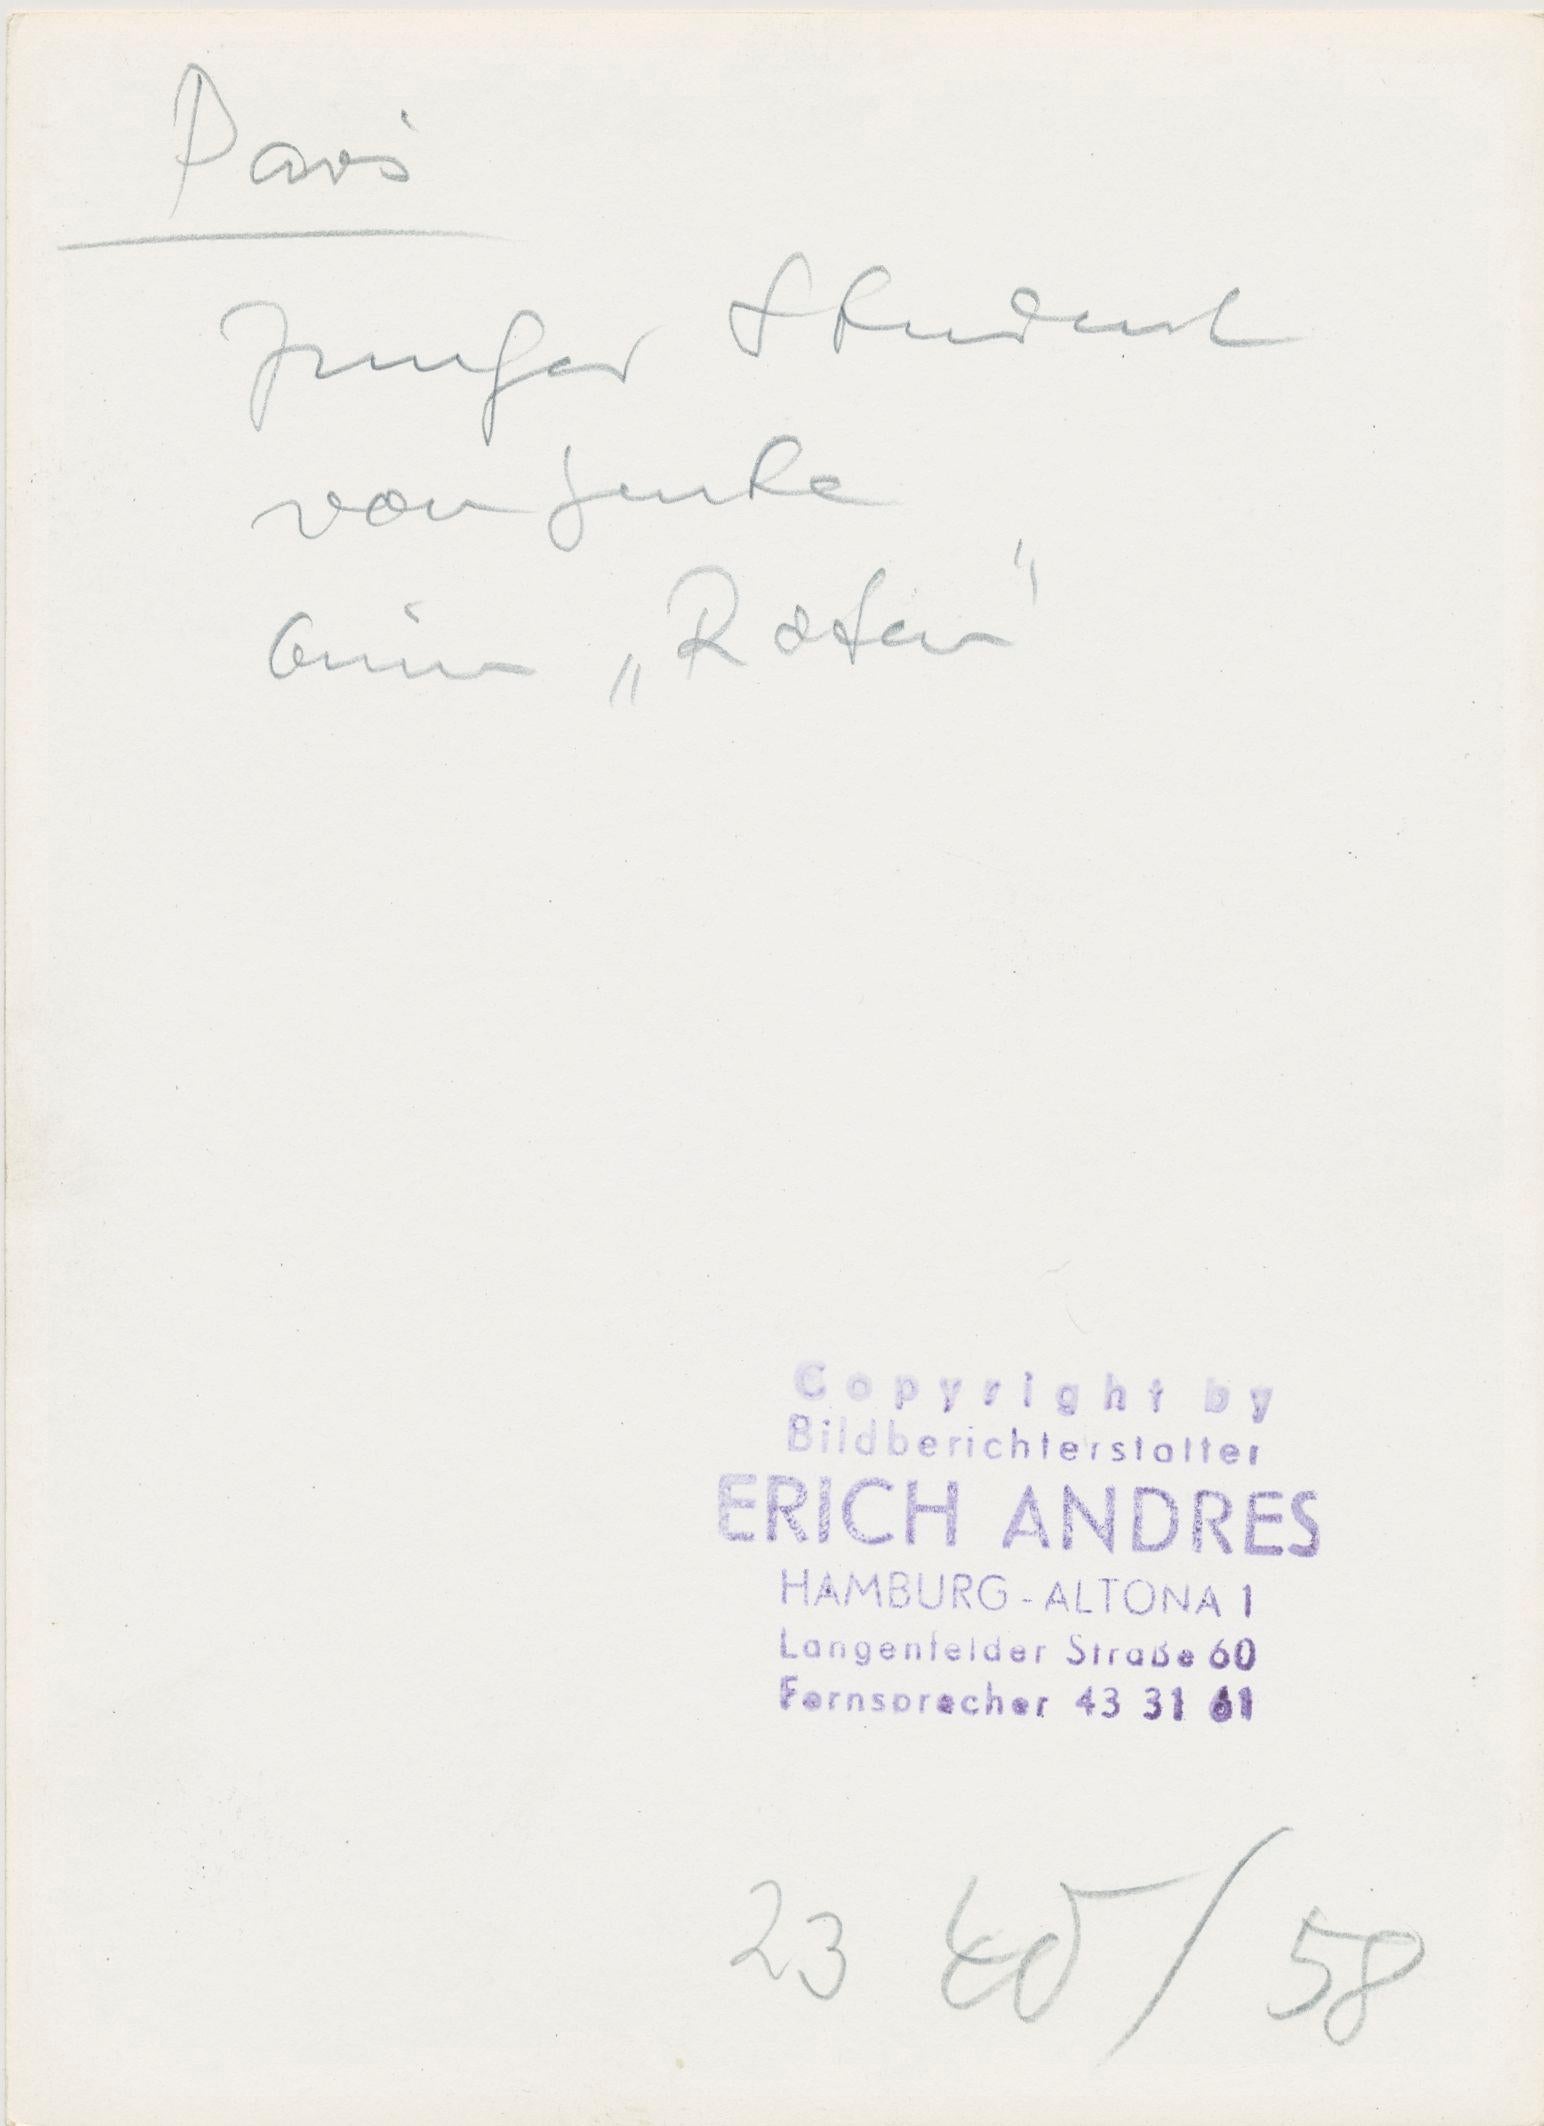 Paris
Junger Student
von heute
beim „Roten"
Copyright by
Bildberichterstatter
ERICH ANDRES
HAMBURG-ALTONA 1
Langenfelder Straße 60
Fernsprecher 43 31 61
23 /58